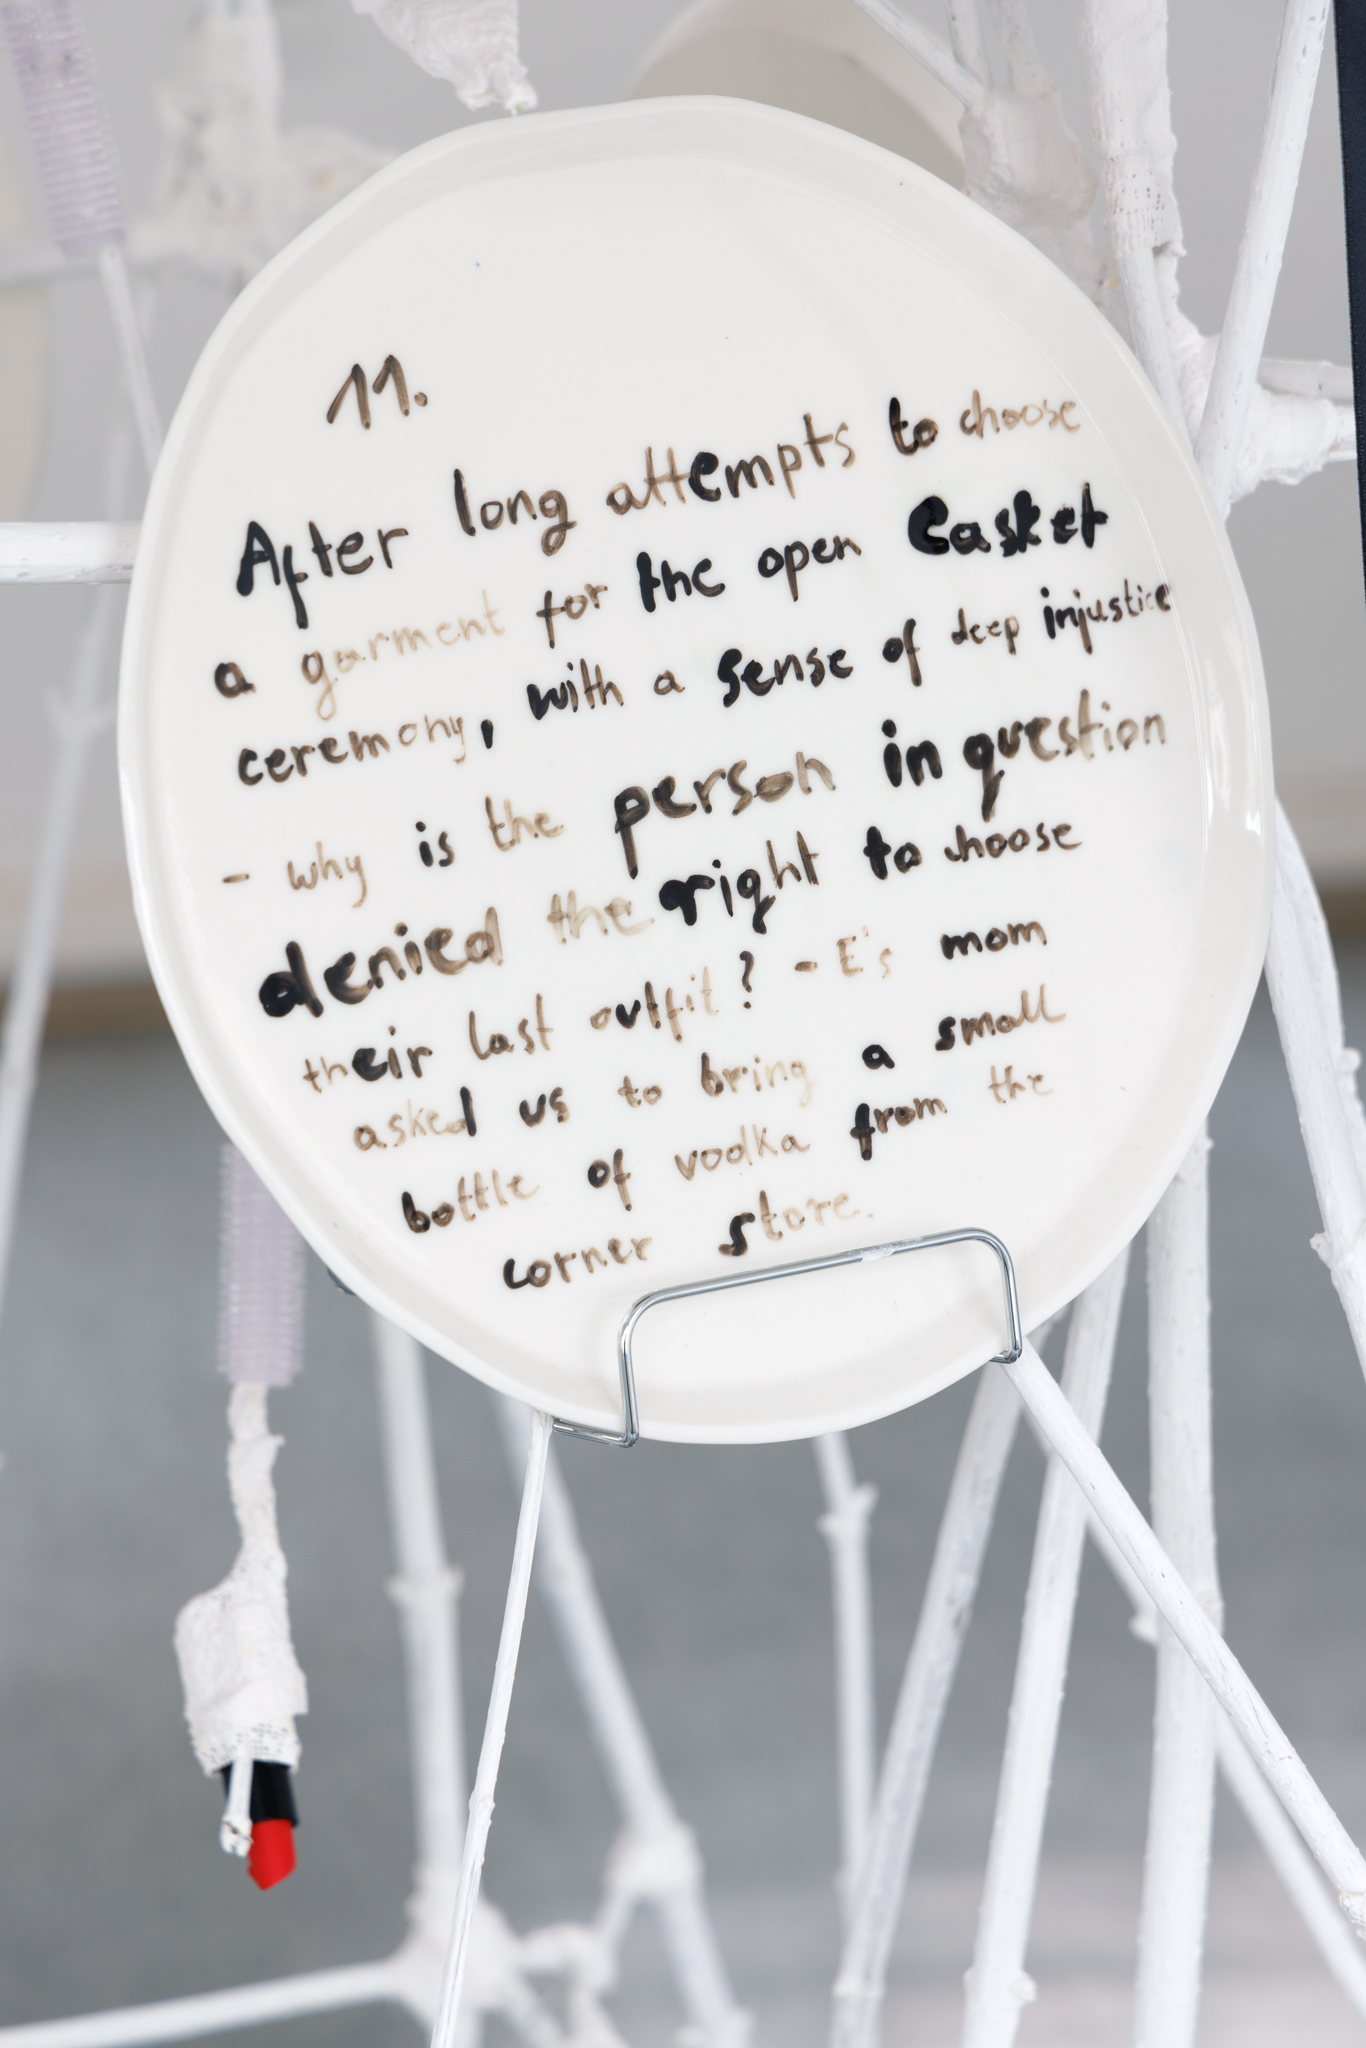 11.
After long attempts to choose
a garment for the open casket
ceremony, with a sense of deep injustice
- why is the person in question
denied the right to choose
their last outfit? - E's mom
asked us to bring a small
bottle of vodka from the
corner store.